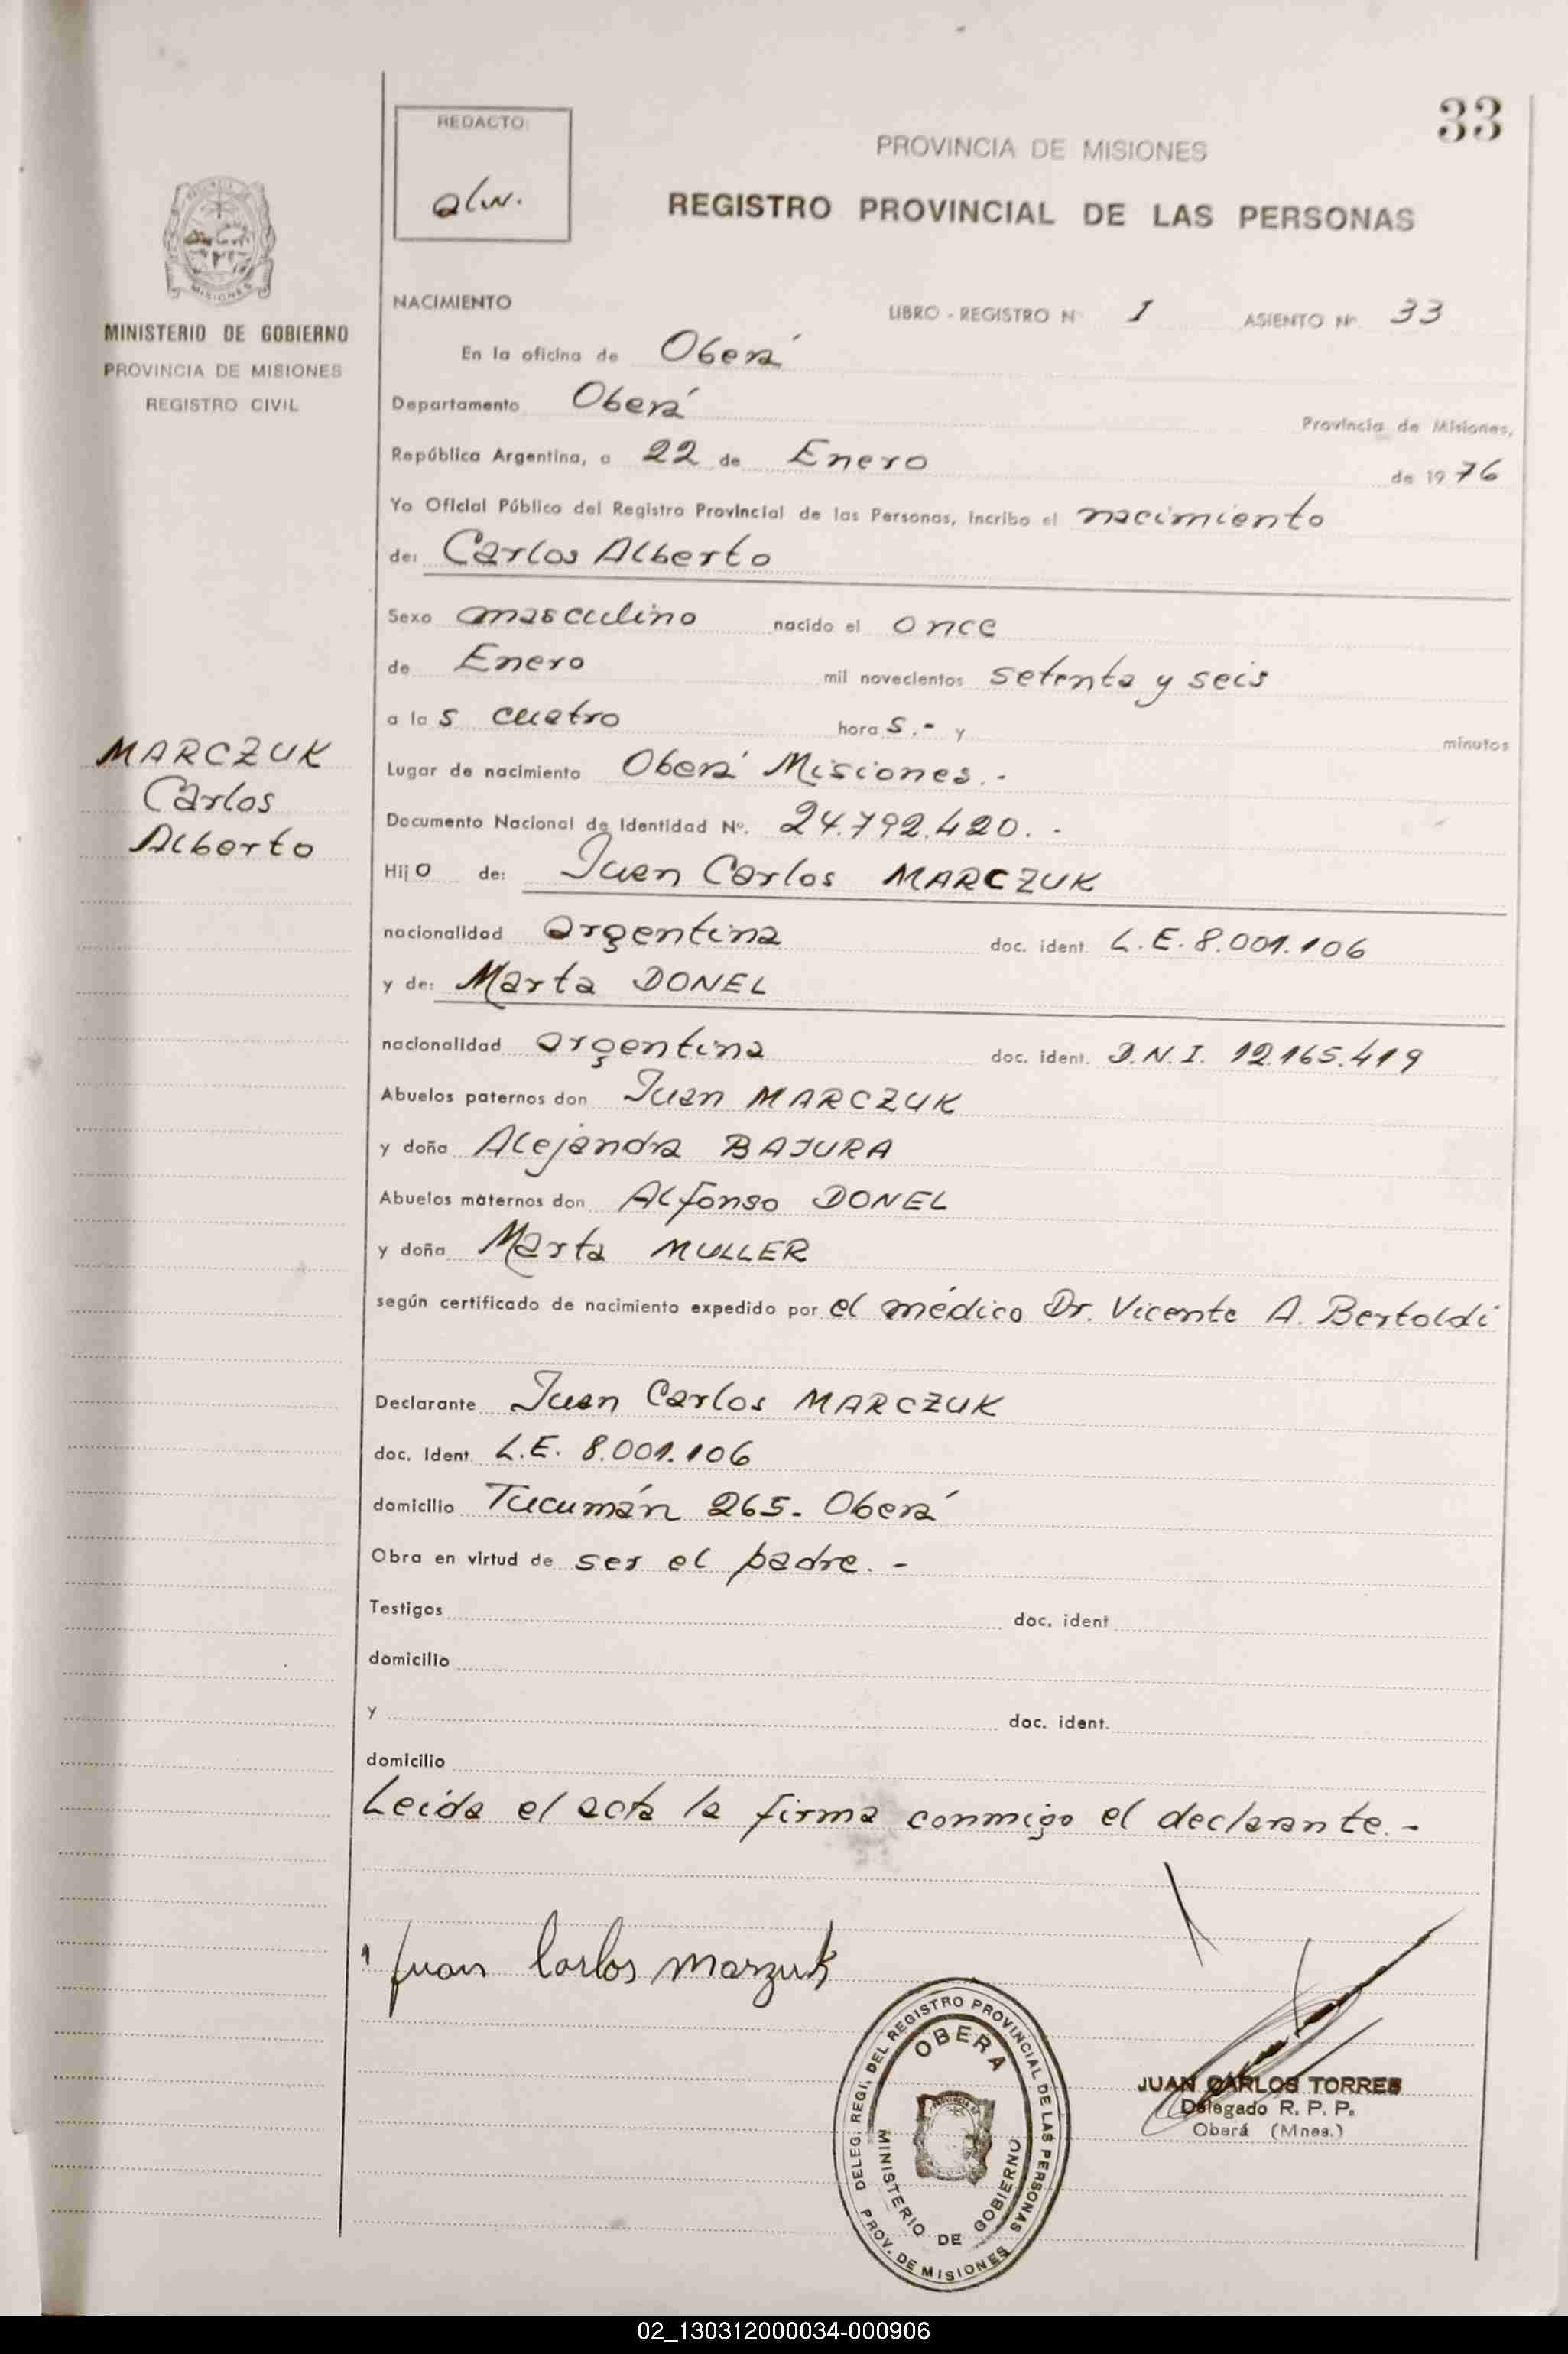 33
REDACTO:
alw.
PROVINCIA DE MISIONES
REGISTRO PROVINCIAL DE LAS PERSONAS
MISIONES
MINISTERIO DE GOBIERNO
PROVINCIA DE MISIONES
REGISTRO CIVIL
NACIMIENTO LIBRO - REGISTRO Nº I ASIENTO Nº 33
En la oficina de Oberá
Departamento Oberá Provincia de Misiones,
República Argentina, a 22 de Enero de 1976
Yo Oficial Público del Registro Provincial de las Personas, incribo el nacimiento
de: Carlos Alberto
Sexo masculino nacido el once
de Enero mil novecientos setenta y seis
a las cuatro horas.- y minutos
MARCZUK
Carlos
Alberto
Lugar de nacimiento Oberá Misiones.-
Documento Nacional de Identidad Nº. 24.792.420.-
Hijo de: Juan Carlos MARCZUK
nacionalidad argentina doc. ident. L.E. 8.001.106
y de: Marta DONEL
nacionalidad argentina doc. ident. D.N.I. 12.165.419
Abuelos paternos don Juan MARCZUK
y doña Alejandra BAJURA
Abuelos maternos don Alfonso DONEL
y doña Marta MULLER
según certificado de nacimiento expedido por el médico Dr. Vicente A. Bertoldi
Declarante Juan Carlos MARCZUK
doc. Ident L.E. 8.001.106
domicilio Tucumán 265.- Oberá
Obra en virtud de ser el padre.-
Testigos doc. ident
domicilio
y doc. ident.
domicilio
Leida el acta la firma conmigo el declarante.-
Juan Carlos Marzuk
DELEG. REGI. DEL REGISTRO PROVINCIAL DE LAS PERSONAS
OBERA
MINISTERIO DE GOBIERNO
PROV. DE MISIONES
JUAN CARLOS TORRES
Delegado R. P. P.
Oberá (Mnes.)
02_130312000034-000906